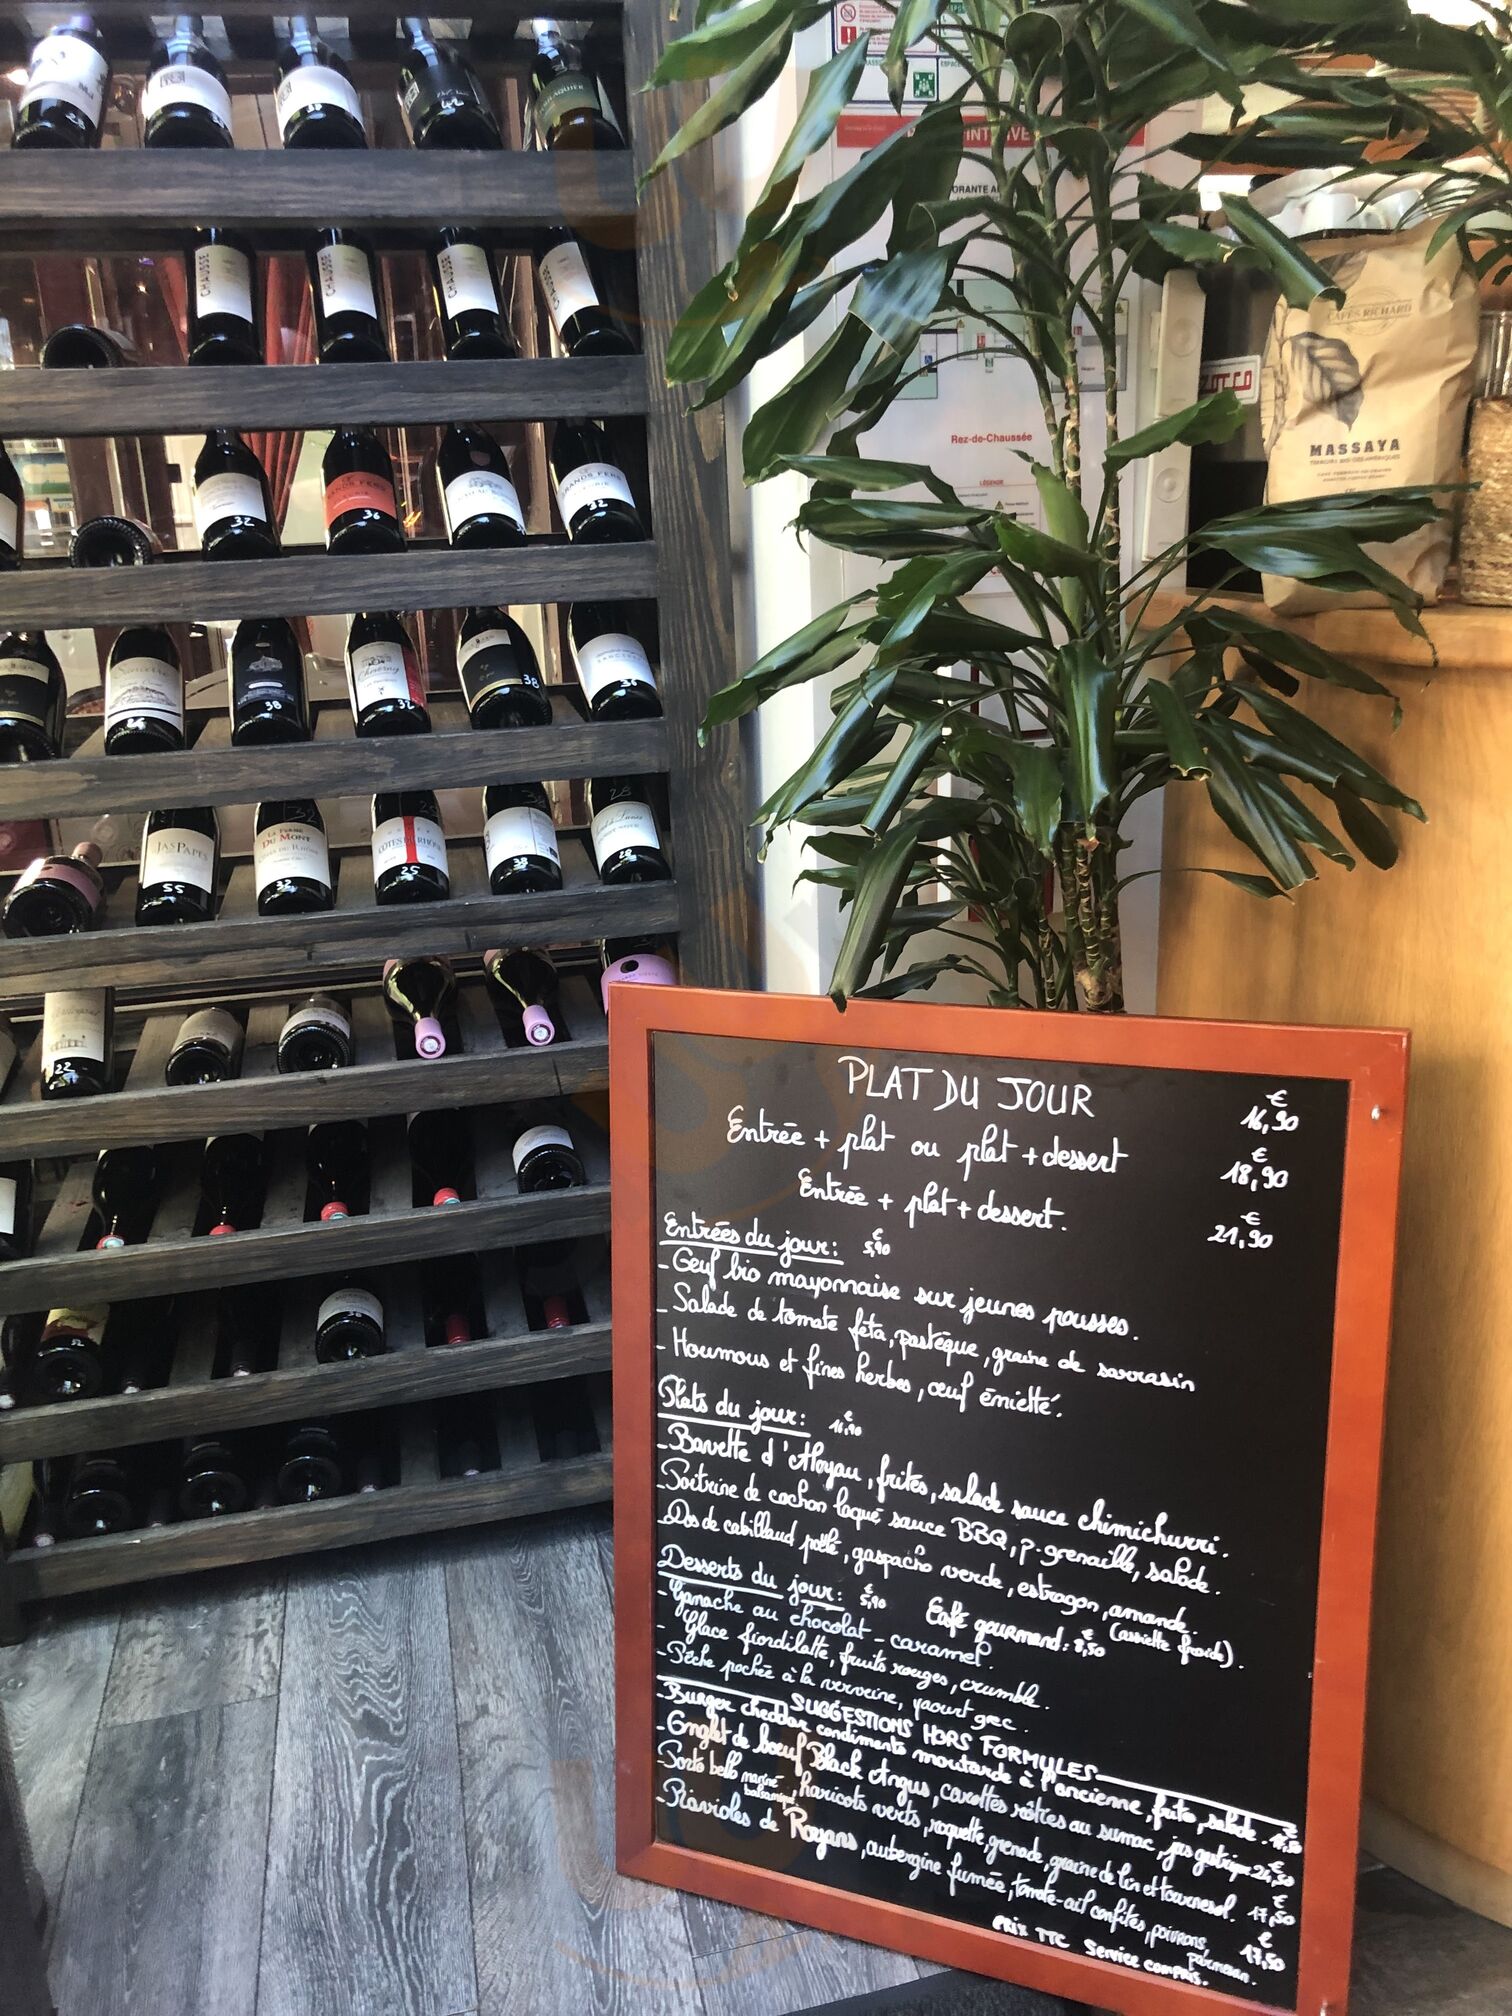 CHAUSSE
CHAUSSE
CHAUSSE
32
36
32
38
32
38
36
26
JAS PAPES
55
LA FERME
DU MONT
CÔTES DU RHÔNE
32
CÔTES DU RHÔNE
25
38
28
22
INTERVE
Rez-de-Chaussée
LÉGENDE
CAFÉS RICHARD
MASSAYA
PLAT DU JOUR 16,90 €
Entrée + plat ou plat + dessert 18,90 €
Entrée + plat + dessert. 21,90 €
Entrées du jour: 5,90 €
- Oeuf bio mayonnaise sur jeunes pousses.
- Salade de tomate feta, pastèque, graine de sarrasin
- Houmous et fines herbes, œuf émietté.
Plats du jour: 16,90 €
- Bavette d'Aloyau, frites, salade sauce chimichurri.
- Poitrine de cochon laqué sauce BBQ, p. grenaille, salade.
- Dos de cabillaud poêlé, gaspacho verde, estragon, amande. (assiette froide).
Desserts du jour: 5,90 € Café gourmand: 8,50 €
- Ganache au chocolat - caramel.
- Glace fiordilatte, fruits rouges, crumble.
- Pêche pochée à la verveine, yaourt grec.
SUGGESTIONS HORS FORMULES
- Burger cheddar condiments moutarde à l'ancienne, frites, salade.
- Onglet de boeuf Black Angus, carottes rôties au sumac, jus
- Porto bello mariné balsamique, haricots verts, roquette, grenade, graine de lin et tournesol. 17,50 €
- Ravioles de Royans, aubergine fumée, tomate-ail confites, poivrons, parmesan. 17,50 €
PRIX TTC Service compris.